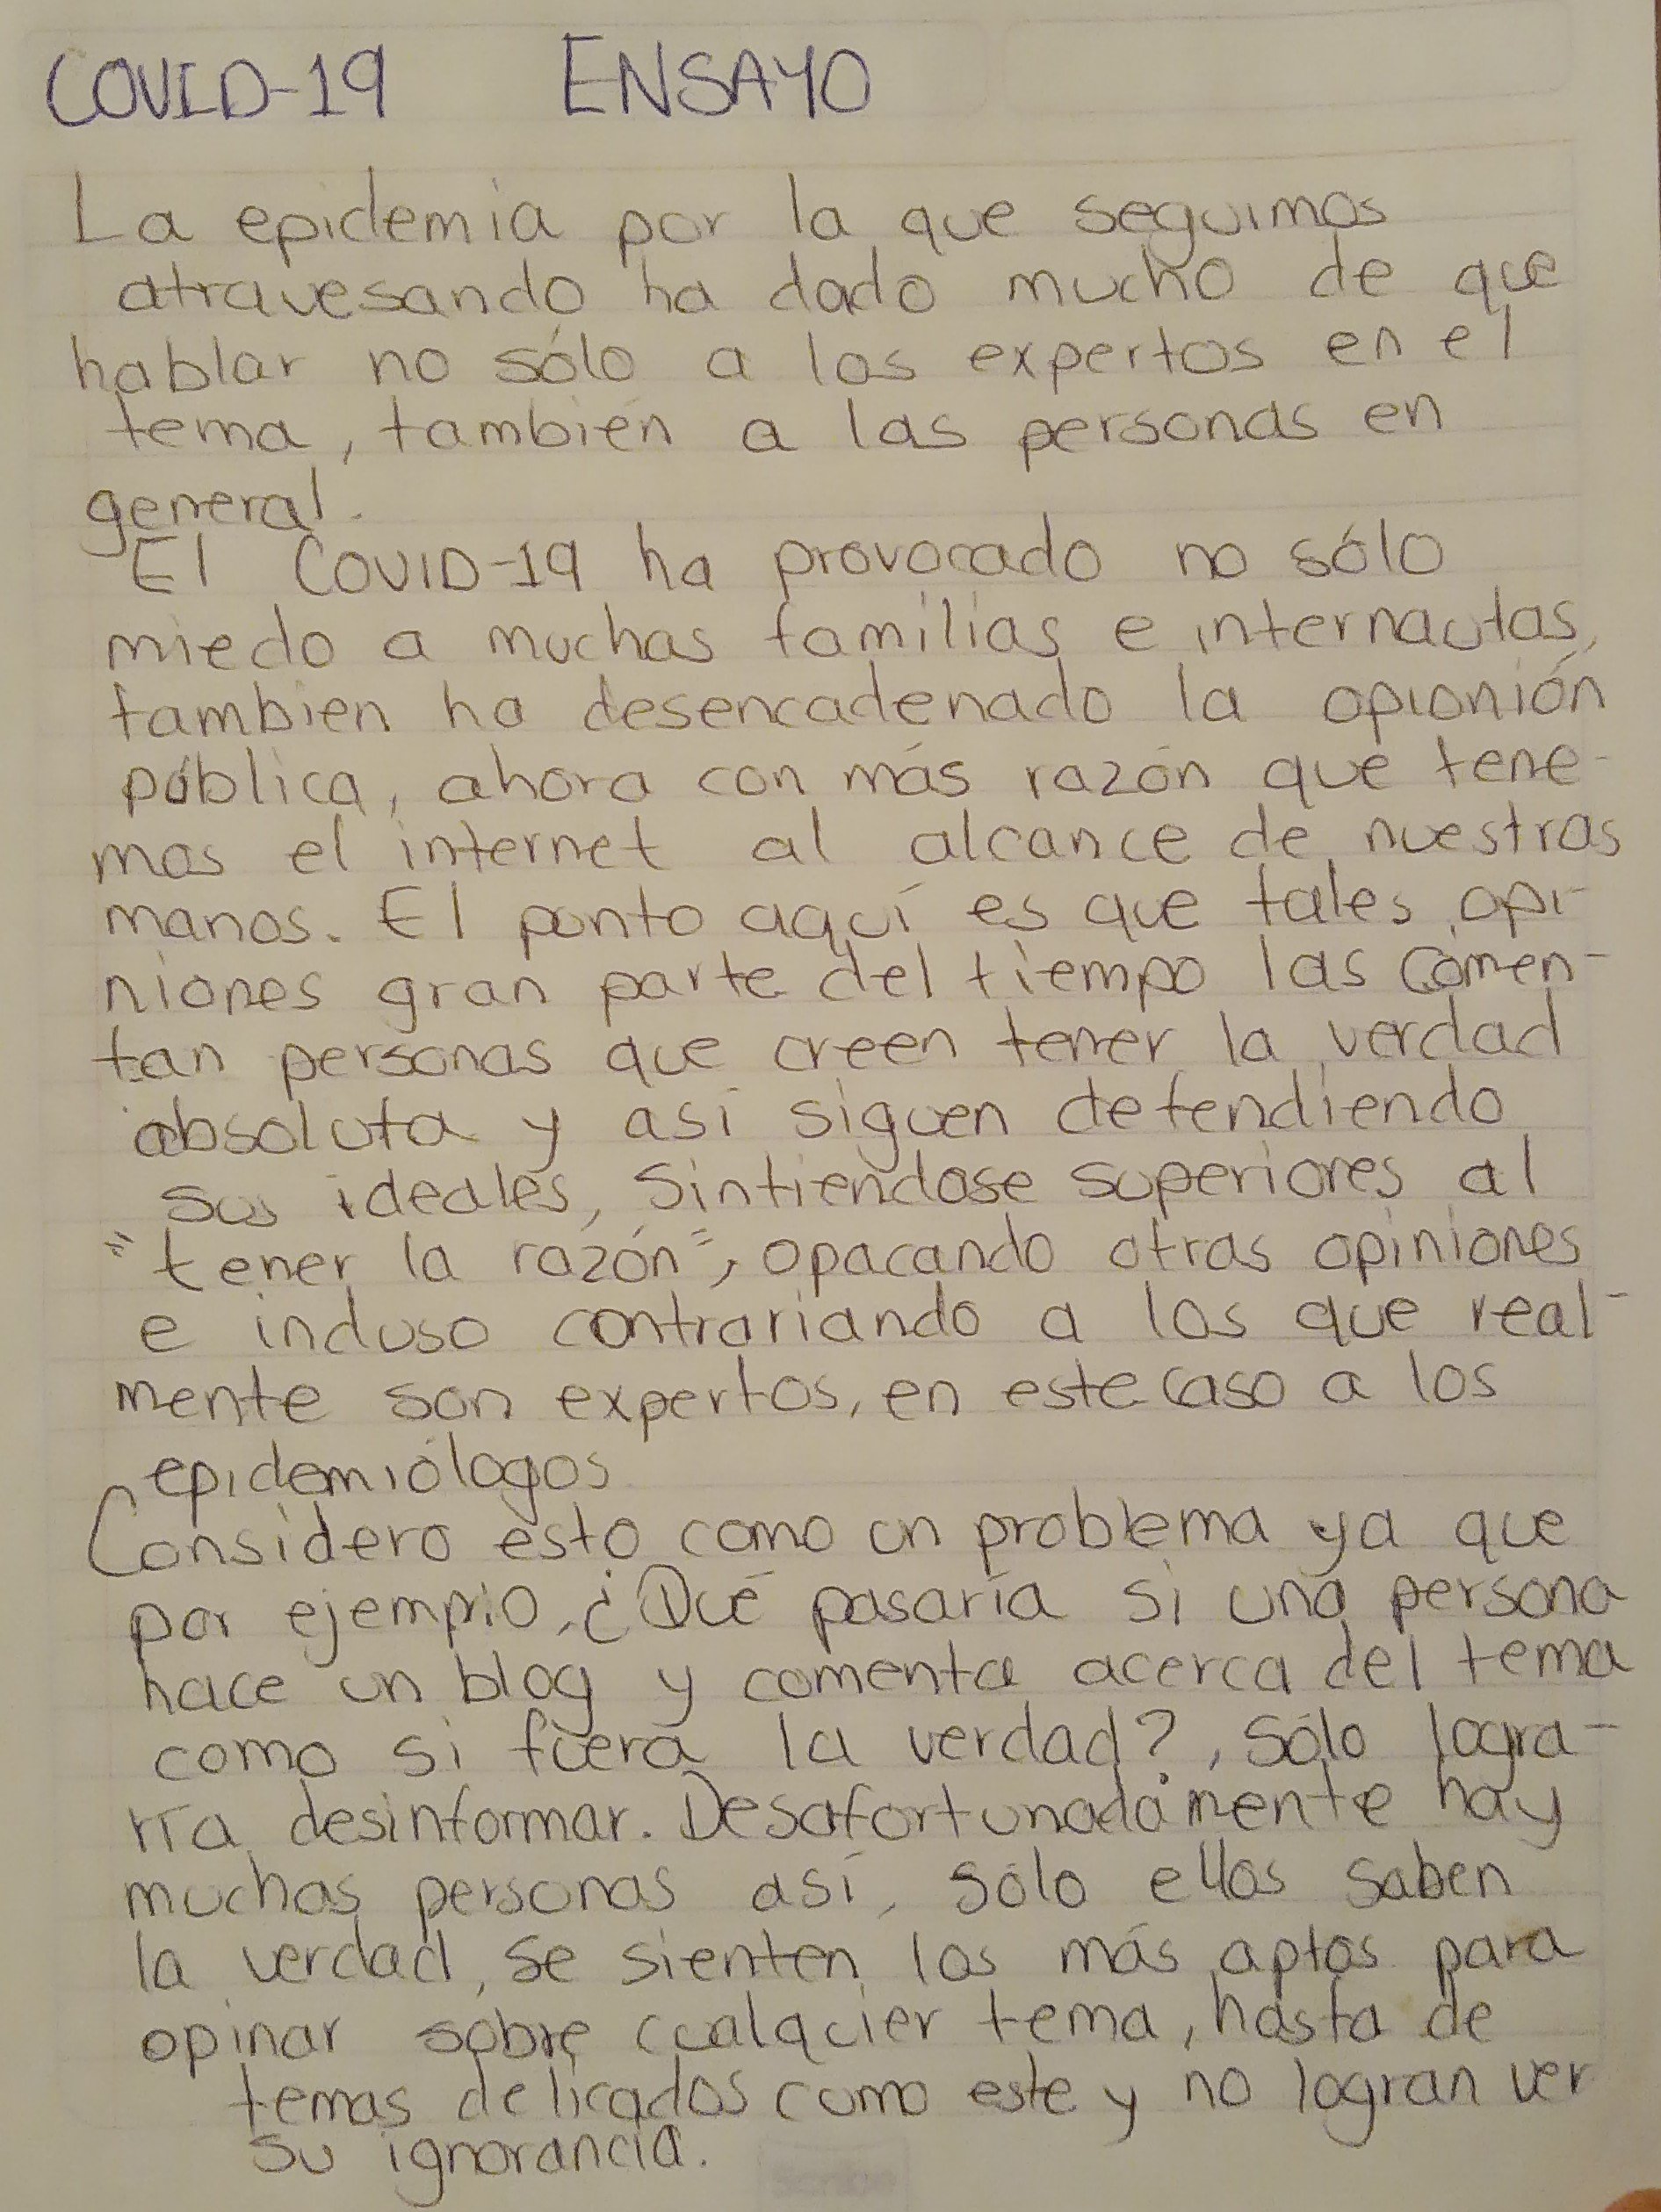 COVID-19 ENSAYO
La epidemia por la que seguimos
atravesando ha dado mucho de que
hablar no sólo a los expertos en el
tema, también a las personas en
general.
El COVID-19 ha provocado no sólo
miedo a muchas familias e internautas,
tambien ha desencadenado la opionión
pública, ahora con más razón que tene-
mos el internet al alcance de nuestras
manos. El punto aquí es que tales opi-
niones gran parte del tiempo las comen-
tan personas que creen tener la verdad
absoluta y así siguen defendiendo
sus ideales, sintiendose superiores al
"tener la razón", opacando otras opiniones
e incluso contrariando a los que real-
mente son expertos, en este caso a los
epidemiólogos
Considero esto como un problema ya que
por ejemplo, ¿Qué pasaría si una persona
hace un blog y comenta acerca del tema
como si fuera la verdad?, sólo logra-
ría desinformar. Desafortunadamente hay
muchas personas así, sólo ellos saben
la verdad, se sienten los más aptos para
opinar sobre cualquier tema, hasta de
temas delicados como este y no logran ver
su ignorancia.
Scribe